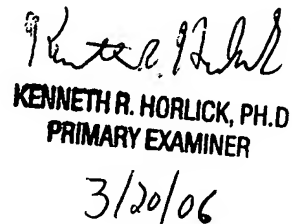 Kenneth R. Horlick
KENNETH R. HORLICK, PH.D
PRIMARY EXAMINER
3/20/06